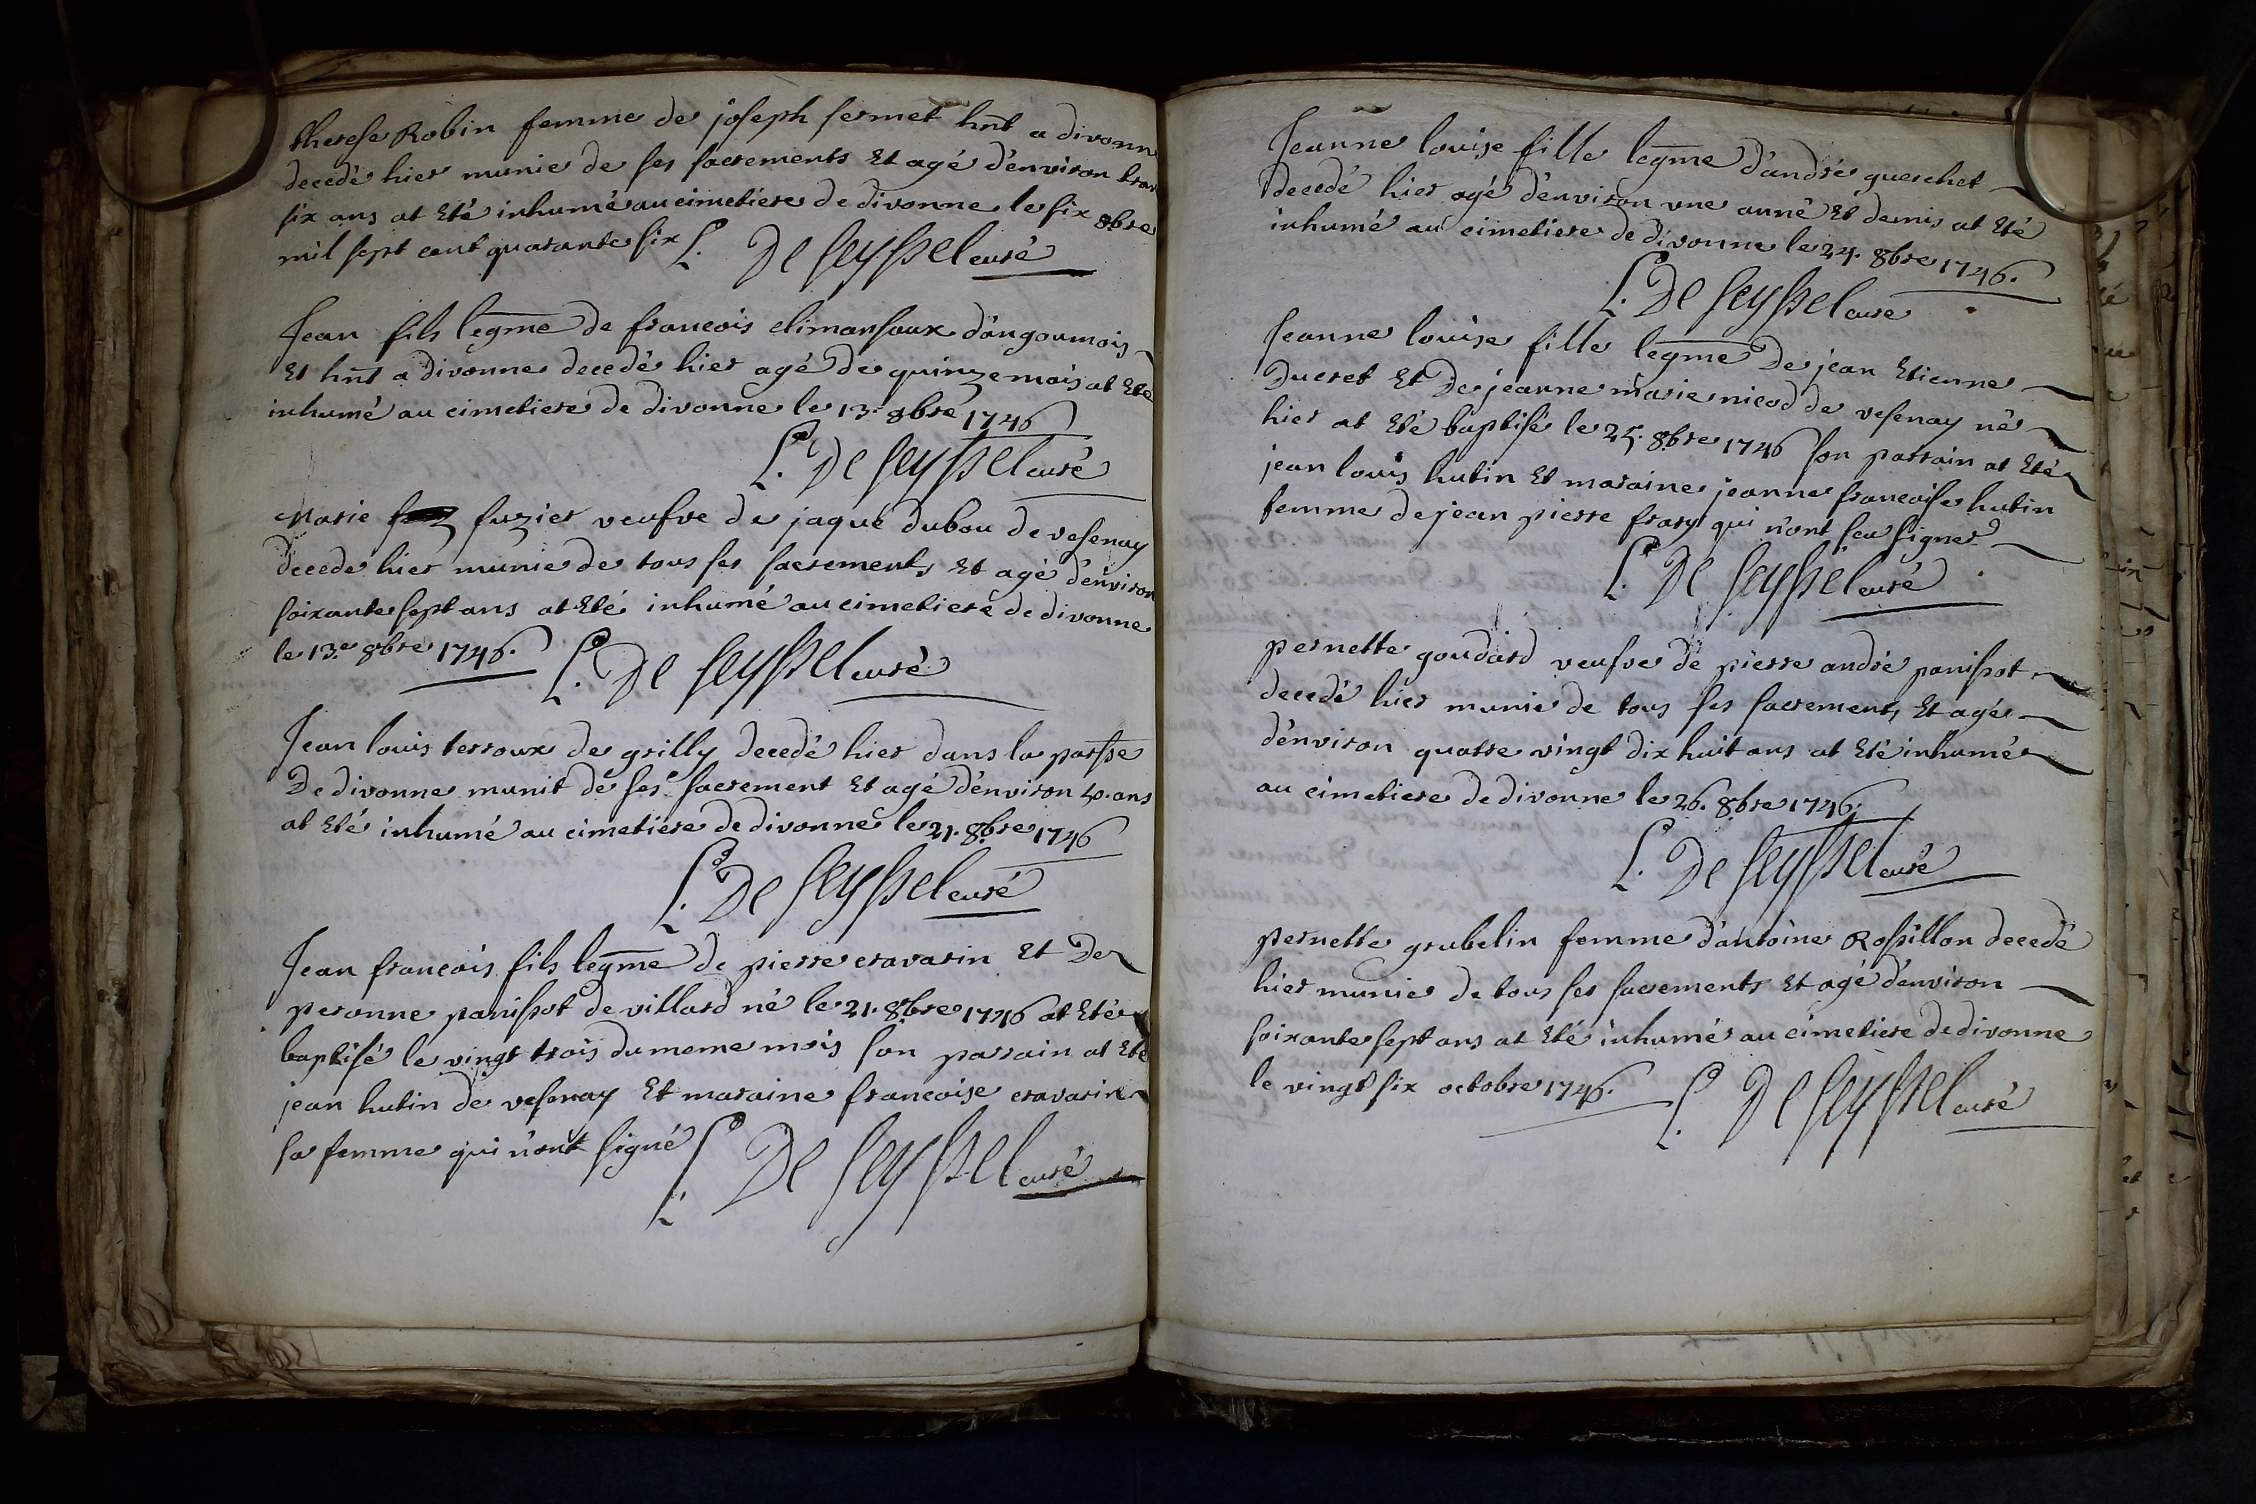 therese Robin femme de joseph fermet hnt a divonne
decedé hier munie de ses sacrements Et agé d'environ
six ans at Eté inhumé au cimetiere de divonne le six 8bre
mil sept cent quarante six L. De Seyssel curé
Jean fils legme de francois climansoux d'angoumois
Et hnt a divonne decedé hier agé de quinze mois at Eté
inhumé au cimetiere de divonne le 13. 8bre 1746
L. De Seyssel curé
Marie fuzier veufve de jaque dubou de vesenay
decede hier munie de tous ses sacrements Et agé d'environ
soixante sept ans at Eté inhumé au cimetiere de divonne
le 13.e 8bre 1746. L. De Seyssel curé
Jean louis terroux de grilly decedé hier dans la parsse
De divonne munit de ses sacrement Et agé d'environ 40. ans
at Eté inhumé au cimetiere de divonne le 21. 8bre 1746
L. De Seyssel curé
Jean francois fils legme de pierre cravarin Et De
peronne panissot de villard né le 21. 8bre 1746 at Eté
baptisé le vingt trois du meme mois son parrain at Eté
jean hutin de vesenay Et maraine francoise cravarin
sa femme qui n'ont signé L. De Seyssel curé
Jeanne louise fille legme d'andré querchet
decedé hier agé d'environ une anné Et demis at Eté
inhumé au cimetiere de divonne le 24. 8bre 1746.
L. De Seyssel curé
Jeanne louise fille legme De jean Etienne
Ducret Et De jeanne marie nicod de vesenay né
hier at Eté baptisé le 25. 8bre 1746 son parrain at Eté
jean louis hutin Et maraine jeanne francoise hutin
femme de jean pierre frary qui n'ont seu signer
L. De Seyssel curé
pernette goudard veufve de pierre andré panissot
decedé hier munie de tous ses sacrements Et agé
d'environ quatre vingt dix huit ans at Eté inhumé
au cimetiere de divonne le 26. 8bre 1746.
L. De Seyssel curé
pernette grubelin femme d'antoine Rossillon decedé
hier munie de tous ses sacrements Et agé d'environ
soixante sept ans at Eté inhumé au cimetiere de divonne
le vingt six octobre 1746. L. De Seyssel curé